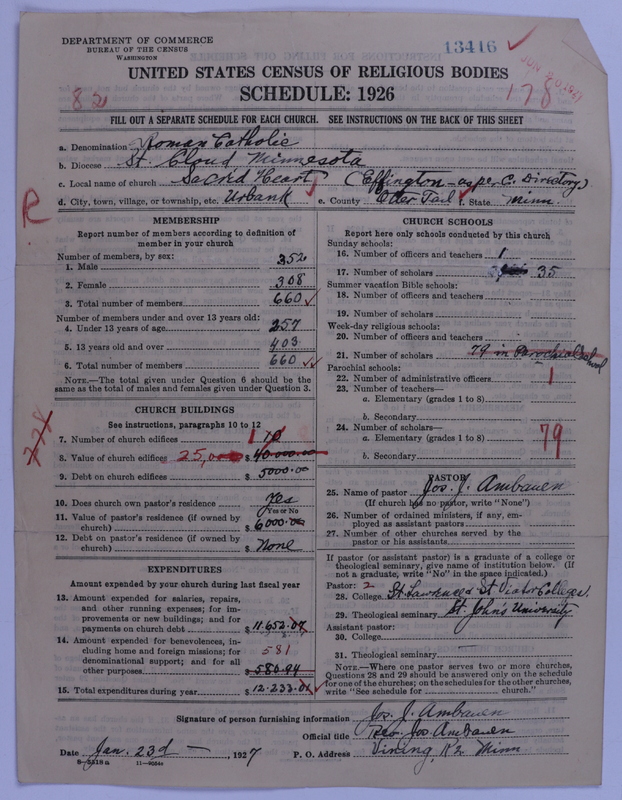 DEPARTMENT OF COMMERCE
BUREAU OF THE CENSUS
WASHINGTON
13416 ✓
UNITED STATES CENSUS OF RELIGIOUS BODIES
SCHEDULE: 1926
82
178
FILL OUT A SEPARATE SCHEDULE FOR EACH CHURCH. SEE INSTRUCTIONS ON THE BACK OF THIS SHEET
a. Denomination Roman Catholic
b. Diocese St. Cloud Minnesota
c. Local name of church Sacred Heart (Effington – as per C. Directory)
d. City, town, village, or township, etc. Urbank e. County Otter Tail f. State Minn.
R
MEMBERSHIP
Report number of members according to definition of member in your church
Number of members, by sex:
1. Male 352
2. Female 308
3. Total number of members 660 ✓
Number of members under and over 13 years old:
4. Under 13 years of age 257
5. 13 years old and over 403
6. Total number of members 660 ✓✓
NOTE.—The total given under Question 6 should be the
same as the total of males and females given under Question 3.
CHURCH BUILDINGS
See instructions, paragraphs 10 to 12
7. Number of church edifices 1
8. Value of church edifices 25,000 $ 40.000.00
9. Debt on church edifices $ 5000.00
10. Does church own pastor's residence Yes
Yes or No
11. Value of pastor's residence (if owned by
church) $ 6000.00
12. Debt on pastor's residence (if owned by
church) $ None
EXPENDITURES
Amount expended by your church during last fiscal year
13. Amount expended for salaries, repairs,
and other running expenses; for im-
provements or new buildings; and for
payments on church debt $ 11.652.07
14. Amount expended for benevolences, in-
cluding home and foreign missions; for
denominational support; and for all
other purposes 581 $ 580.94
15. Total expenditures during year $ 12.233.01 ✓
CHURCH SCHOOLS
Report here only schools conducted by this church
Sunday schools:
16. Number of officers and teachers 1
17. Number of scholars 35
Summer vacation Bible schools:
18. Number of officers and teachers
19. Number of scholars
Week-day religious schools:
20. Number of officers and teachers
21. Number of scholars 79 in Parochial School
Parochial schools:
22. Number of administrative officers 1
23. Number of teachers—
a. Elementary (grades 1 to 8)
b. Secondary
24. Number of scholars—
a. Elementary (grades 1 to 8) 79
b. Secondary
PASTOR
25. Name of pastor Jos. J. Ambauen
(If church has no pastor, write "None")
26. Number of ordained ministers, if any, em-
ployed as assistant pastors
27. Number of other churches served by the
pastor or his assistants
If pastor (or assistant pastor) is a graduate of a college or
theological seminary, give name of institution below. (If
not a graduate, write "No" in the space indicated.)
Pastor: 2
28. College St Lawrence & St Viator Colleges.
29. Theological seminary St. John's University
Assistant pastor:
30. College
31. Theological seminary
NOTE.—Where one pastor serves two or more churches,
Questions 28 and 29 should be answered only on the schedule
for one of the churches; on the schedules for the other churches,
write "See schedule for church."
Signature of person furnishing information Jos. J. Ambauen
Official title Rev. Jos. Ambauen
Date Jan. 23d – 1927 P. O. Address Vining, R2 Minn
8—5518a 11—9054a